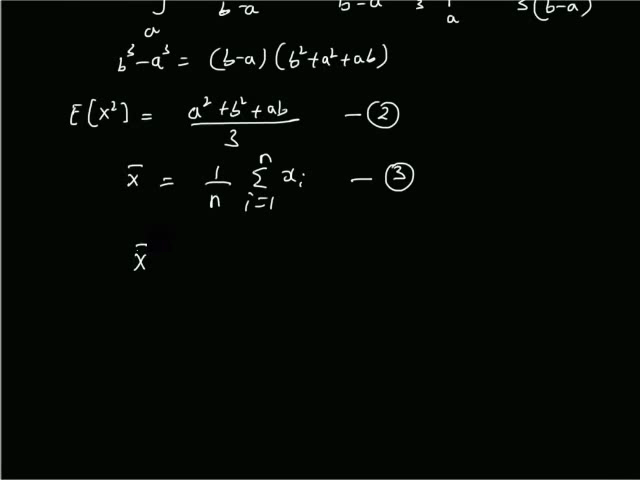 ∫ₐ b-a b-a 3 |ₐ 3(b-a)
b³-a³ = (b-a)(b²+a²+ab)
E[x²] = (a²+b²+ab)/3 — ②
x̄ = 1/n ∑ᵢ₌₁ⁿ xᵢ — ③
x̄